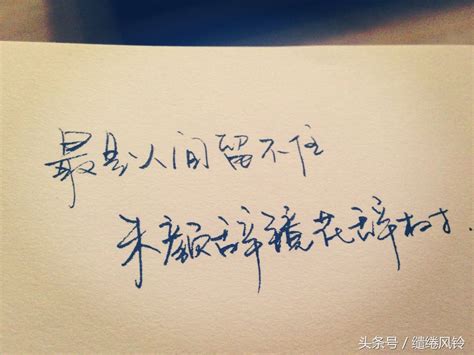 最是人间留不住
朱颜辞镜花辞树.
头条号／缱绻风铃